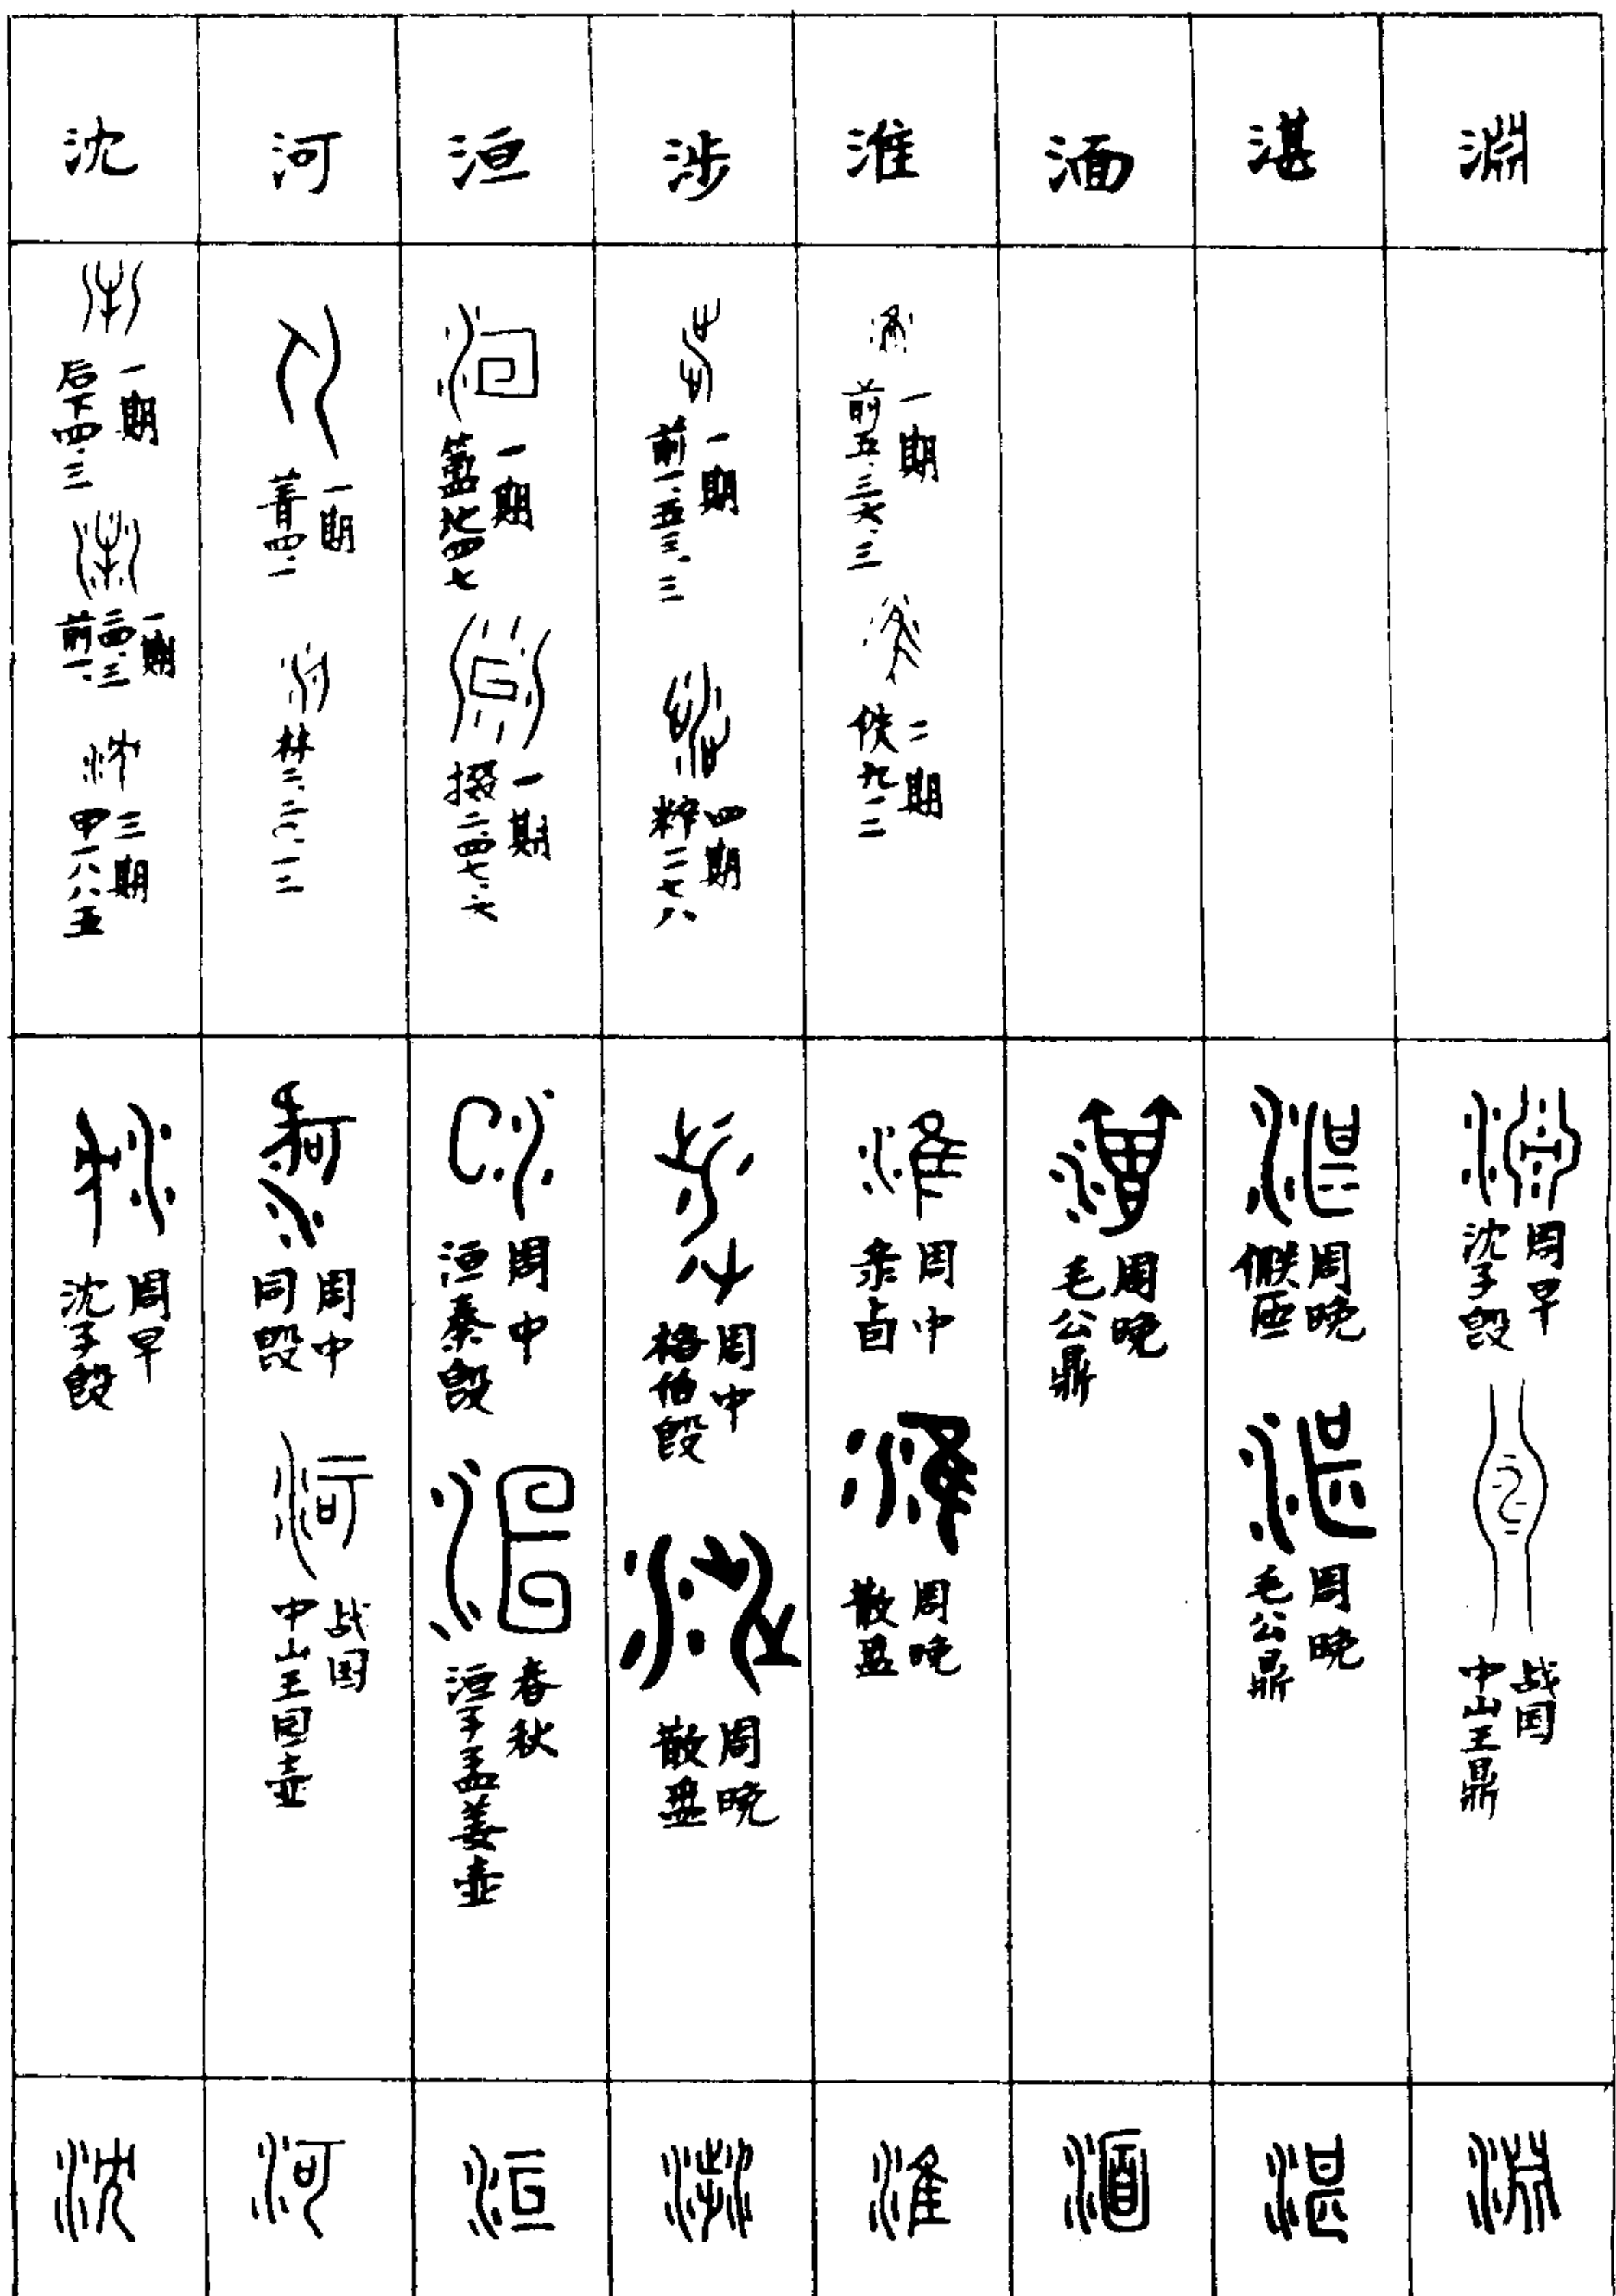 沈 河 洹 涉 淮 湎 湛 淵
一期
后下四.三
一期
前一.二四.三
三期
甲一八八五
一期
菁四.一
林二.二〇.一二
一期
簠地四七
一期
掇二.四七六
一期
前一.五三.三
四期
粹一一七八
一期
前五.三六.三
二期
佚九二二
周早
沈子𣪘
周中
同𣪘
战国
中山王圆壶
周中
洹秦𣪘
春秋
洹子孟姜壶
周中
格伯𣪘
周晚
散盘
周中
彔卣
周晚
散盘
周晚
毛公鼎
周晚
𠑇匜
周晚
毛公鼎
周早
沈子𣪘
战国
中山王鼎
沈 河 洹 涉 淮 湎 湛 淵